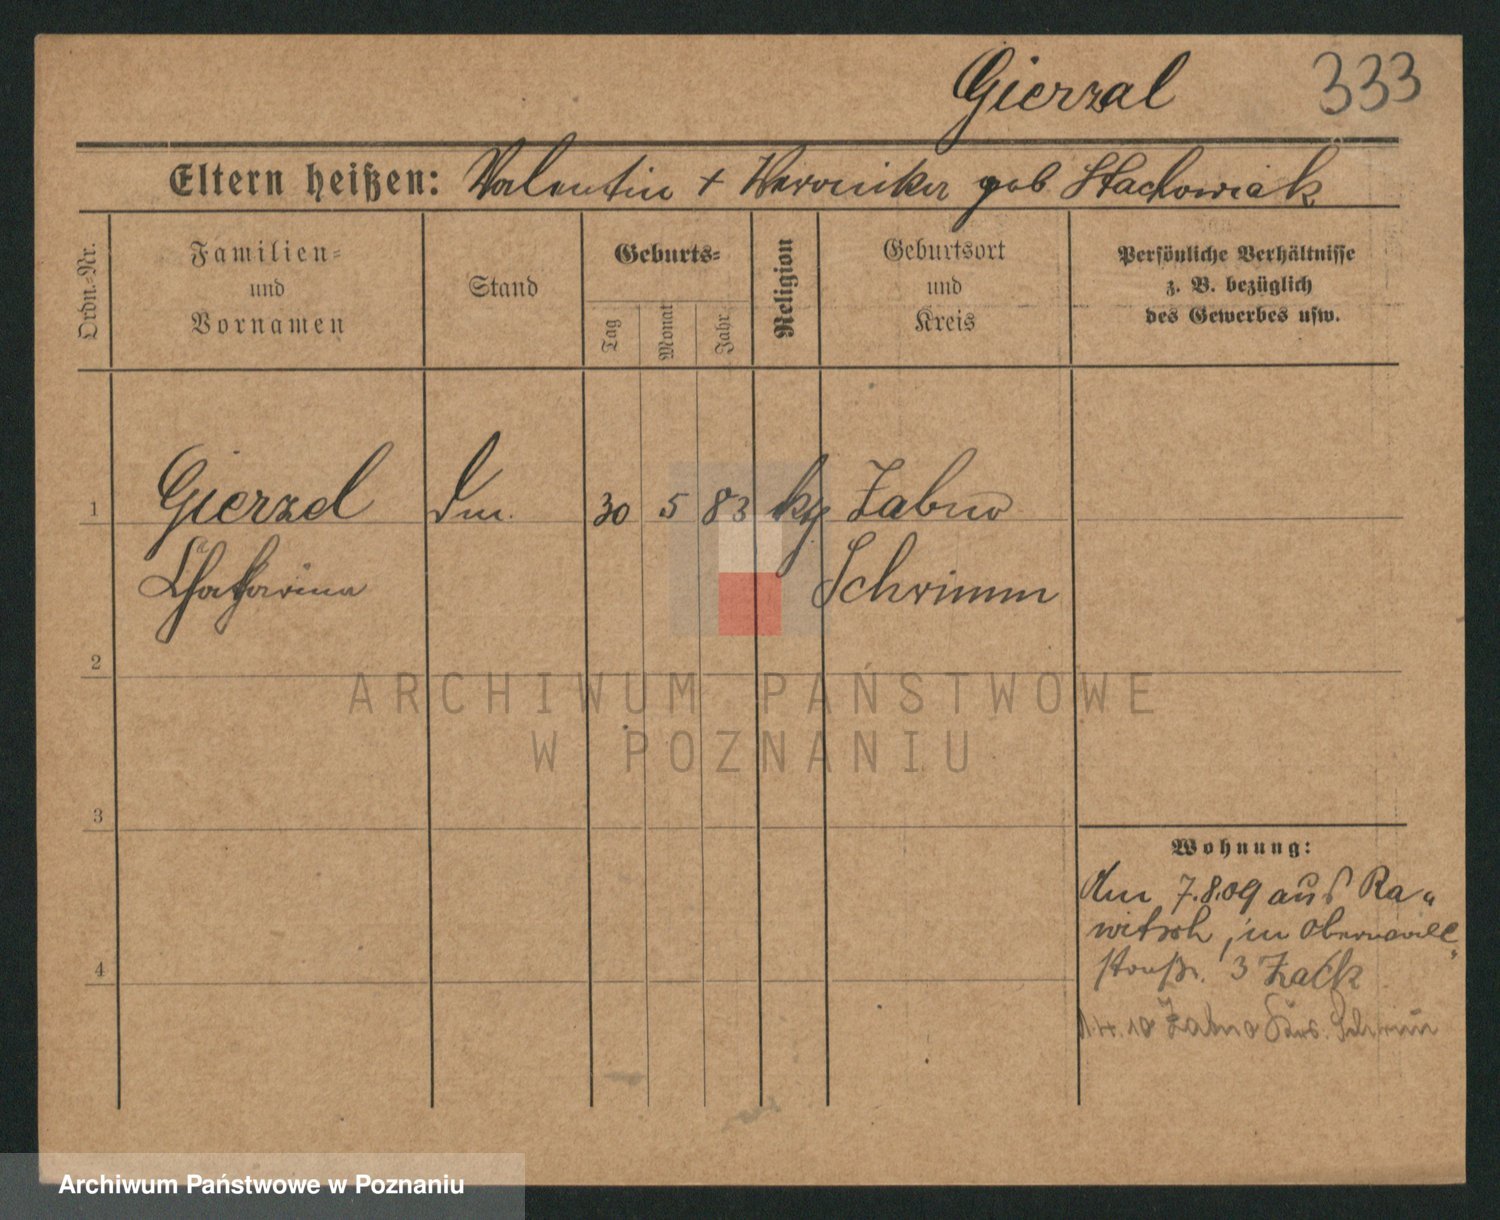 Gierzal 333
Eltern heißen: Valentin + Weronika geb Stachowiak
Ordn.-Nr.
Familien-
und
Vornamen
Stand
Geburts-
Tag
Monat
Jahr
Religion
Geburtsort
und
Kreis
Persönliche Verhältnisse
z. B. bezüglich
des Gewerbes usw.
1 Gierzal 30 5 83 Zabno
Schrimm
2
3
4
Wohnung:
7.8.09 aus Ra„
witsch, in
3 Zack
Zabno
ARCHIWUM PAŃSTWOWE
W POZNANIU
Archiwum Państwowe w Poznaniu